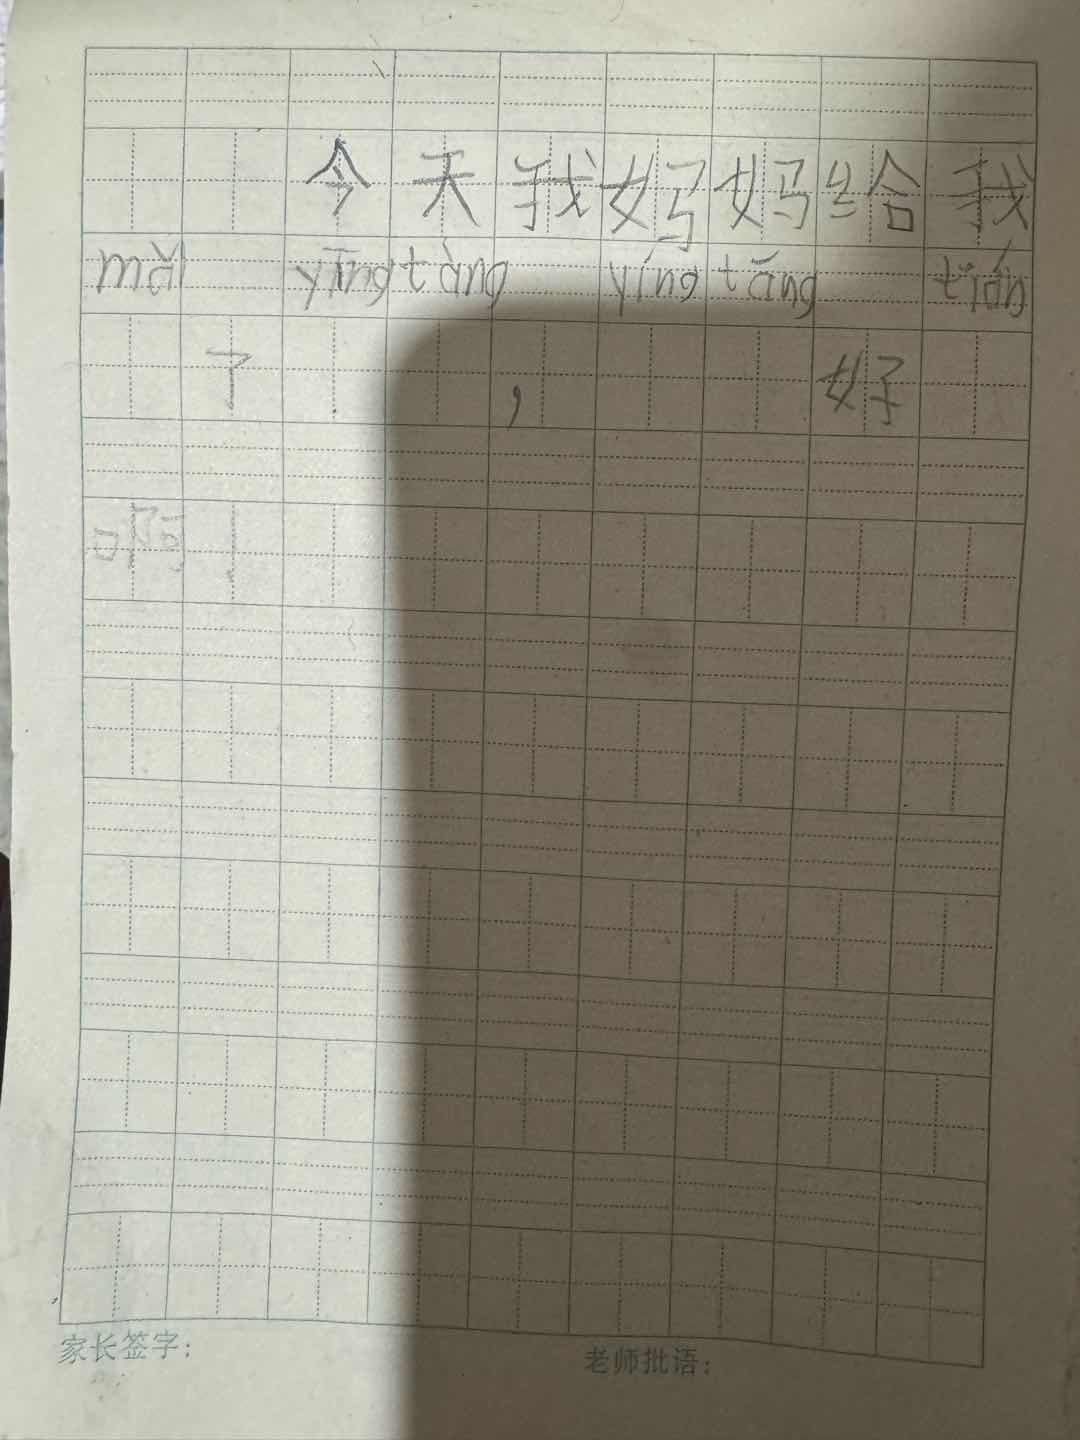 今天我妈妈给我
mǎi yīng tàng yíng tāng tián
了 ， 好
啊！
家长签字： 老师批语：